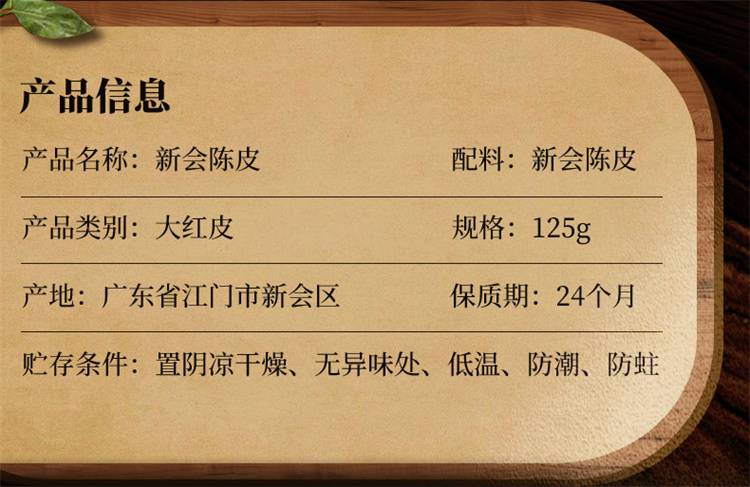 产品信息
产品名称：新会陈皮 配料：新会陈皮
产品类别：大红皮 规格：125g
产地：广东省江门市新会区 保质期：24个月
贮存条件：置阴凉干燥、无异味处、低温、防潮、防蛀